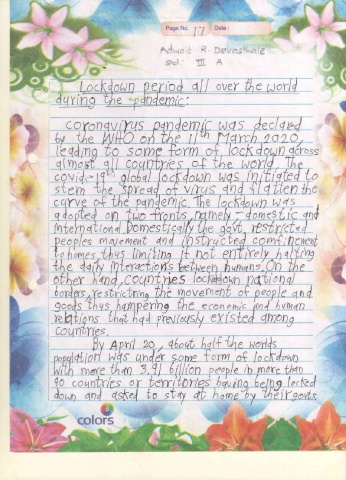 Page No. 17 Date:
Adwait R. Devasthale
std: III A
Lockdown period all over the world
during the pandemic:
coronavirus pandemic was declared
by the WHO on the 11th March 2020
leading to some form of lockdown across
almost all countries of the world. The
covid-19th global lockdown was initiated to
stem the spread of virus and flatten the
curve of the pandemic. The lockdown was
adopted on two fronts, namely - domestic and
international. Domestically the govt. restricted
peoples movement and instructed confinement
to homes, thus limiting if not entirely halting
the daily interactions between humans. On the
other hand, countries lockdown national
borders, restricting the movement of people and
goods thus hampering the economic and human
relations that had previously existed among
countries.
By April 20, about half the worlds
population was under some form of lockdown
with more than 3.91 billion people in more than
90 countries or territories having being locked
down and asked to stay at home by their govts
colors